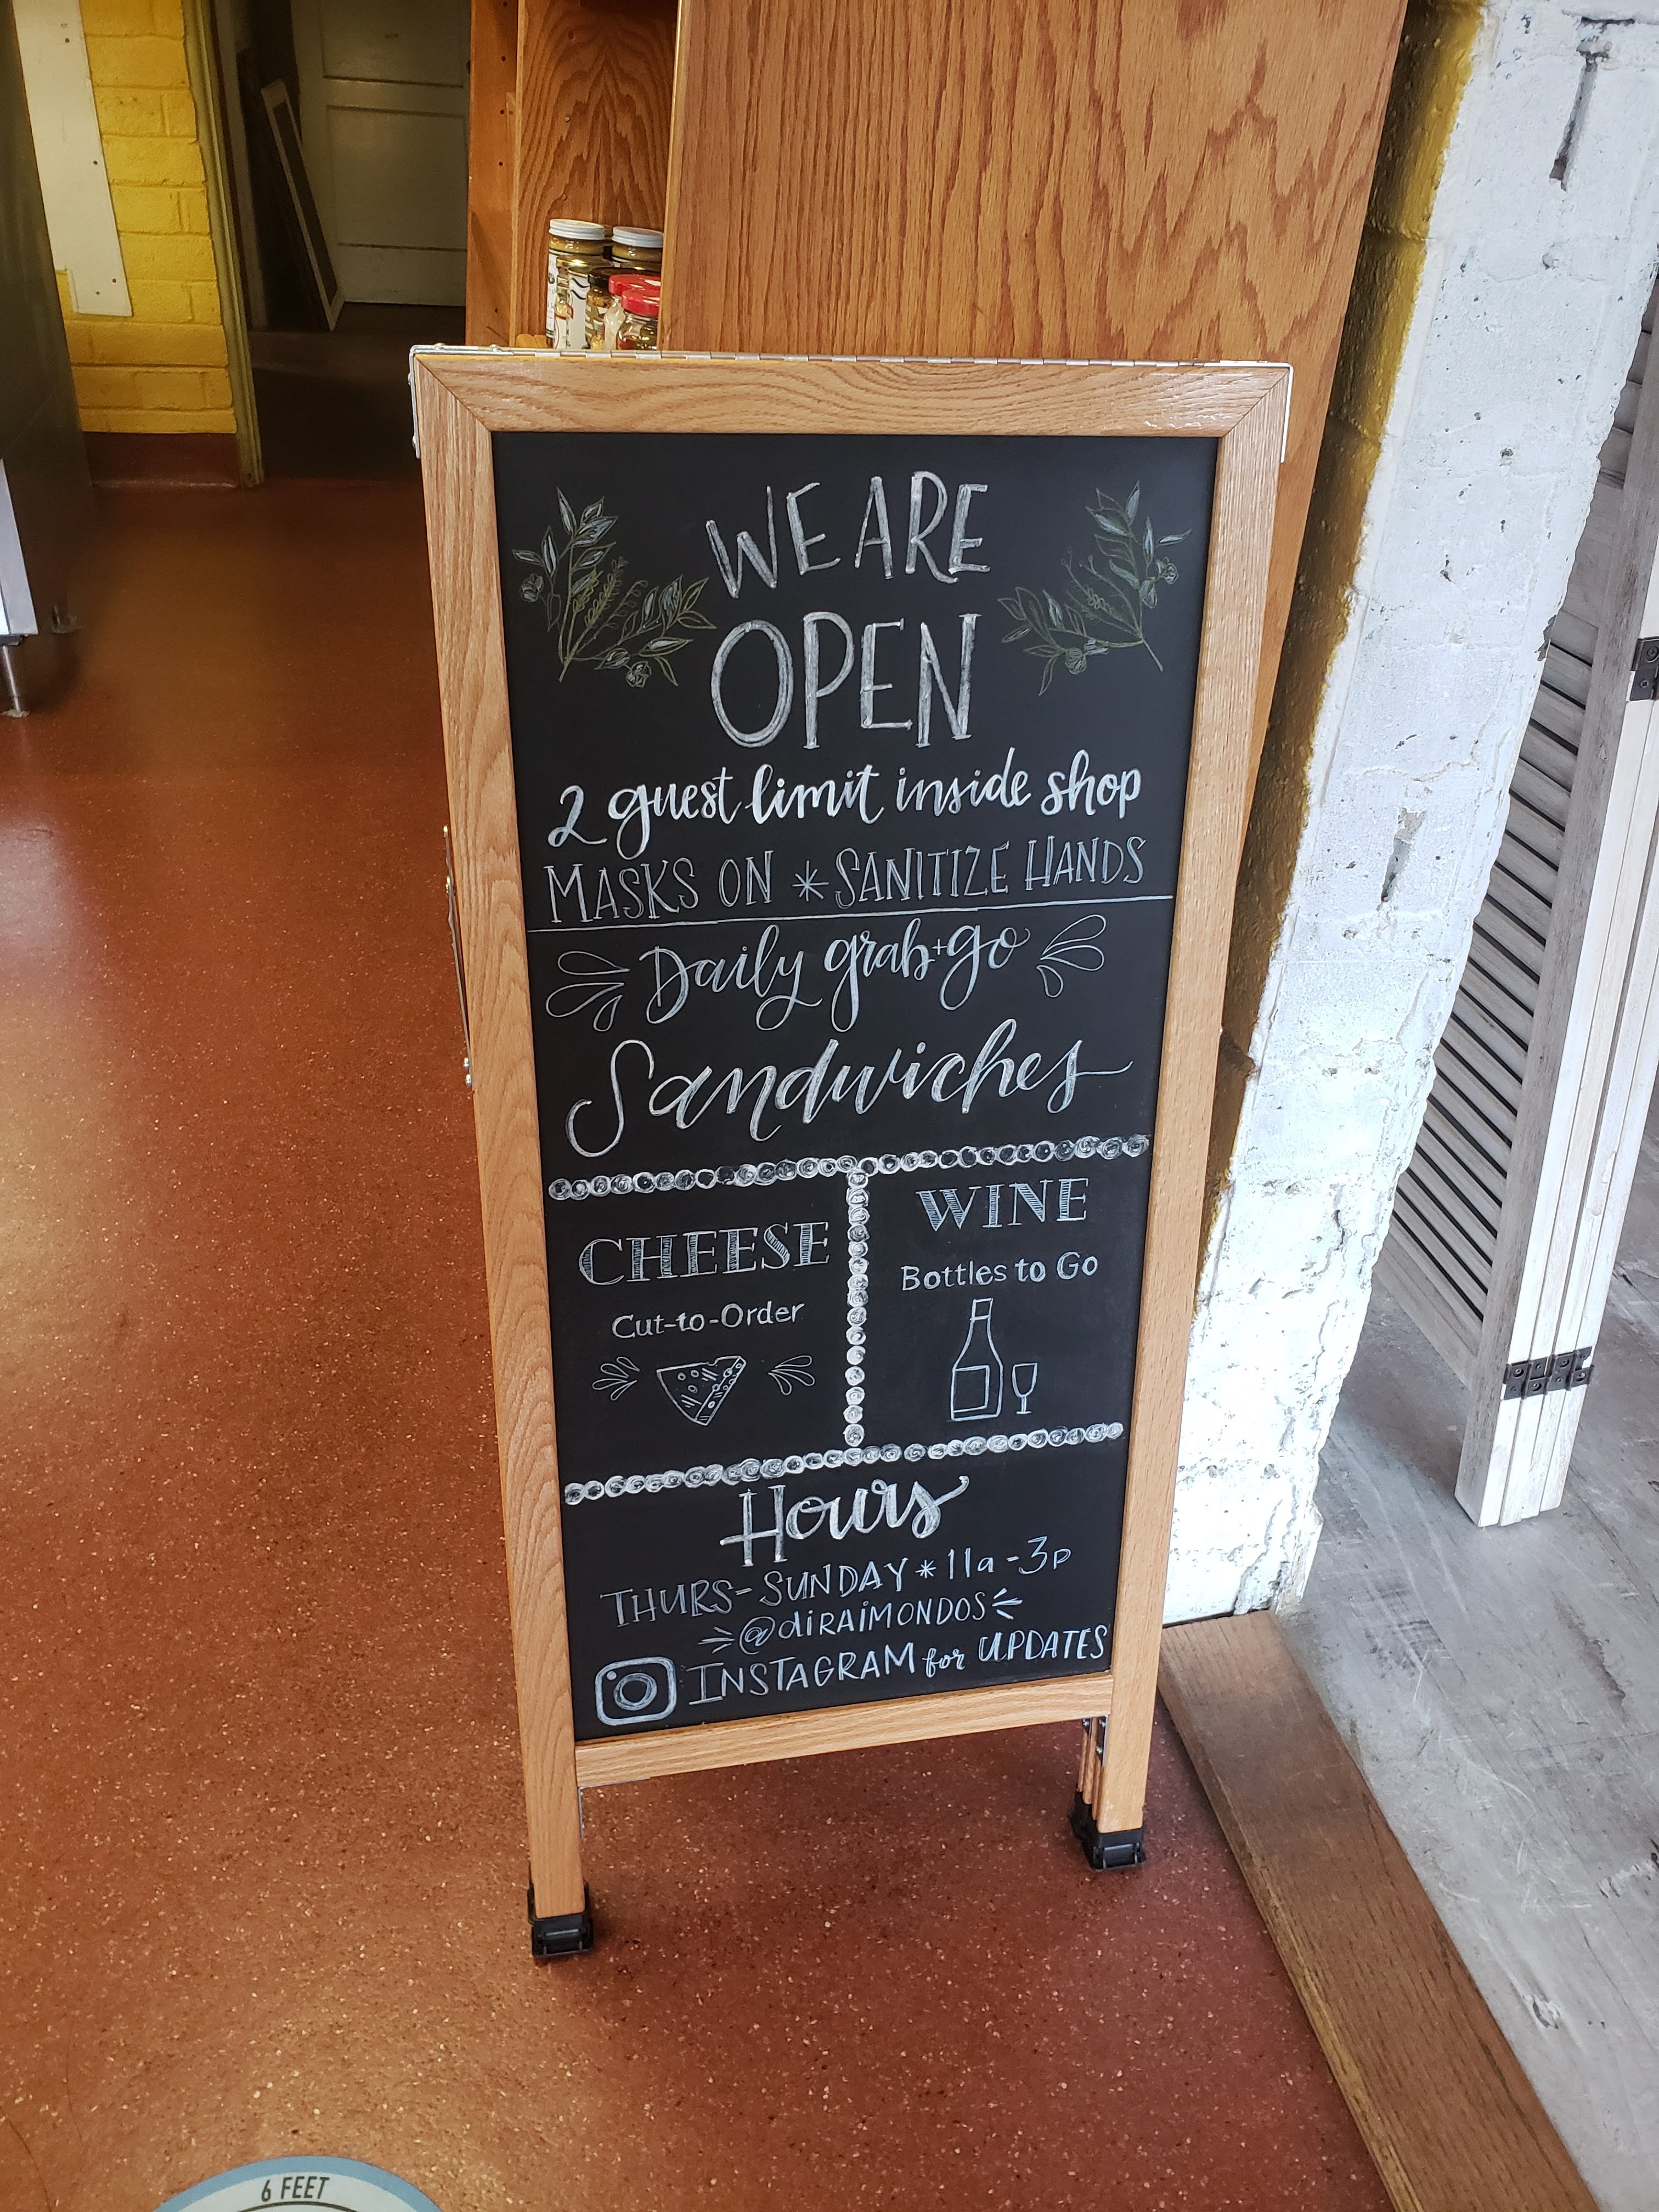 WE ARE
OPEN
2 guest limit inside shop
MASKS ON * SANITIZE HANDS
Daily grab+go
Sandwiches
CHEESE
Cut-to-Order
WINE
Bottles to Go
Hours
THURS-SUNDAY * 11a-3p
@diRAiMONDOS
INSTAGRAM for UPDATES
6 FEET